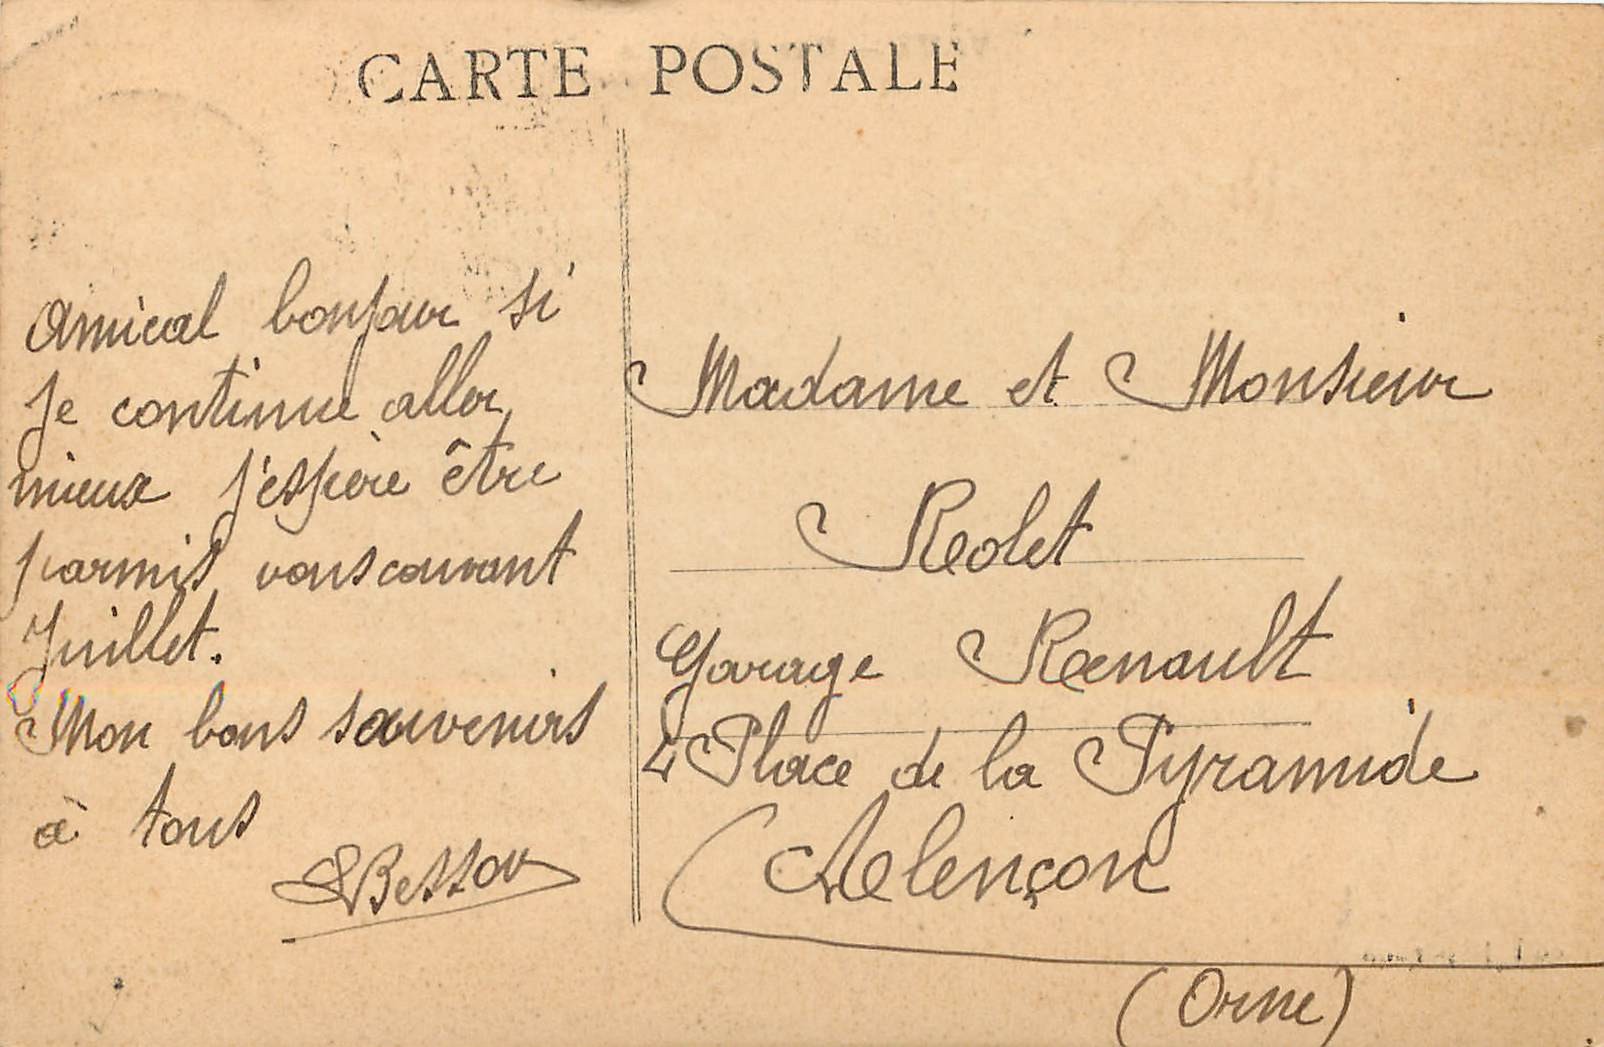 CARTE POSTALE
Amical bonjour si
je continue aller
mieux j'espère être
parmis vous courant
Juillet.
Mon bons souvenirs
à tous
Besson
Madame et Monsieur
Reolet
Garage Renault
4 Place de la Pyramide
Alençon
(Orne)